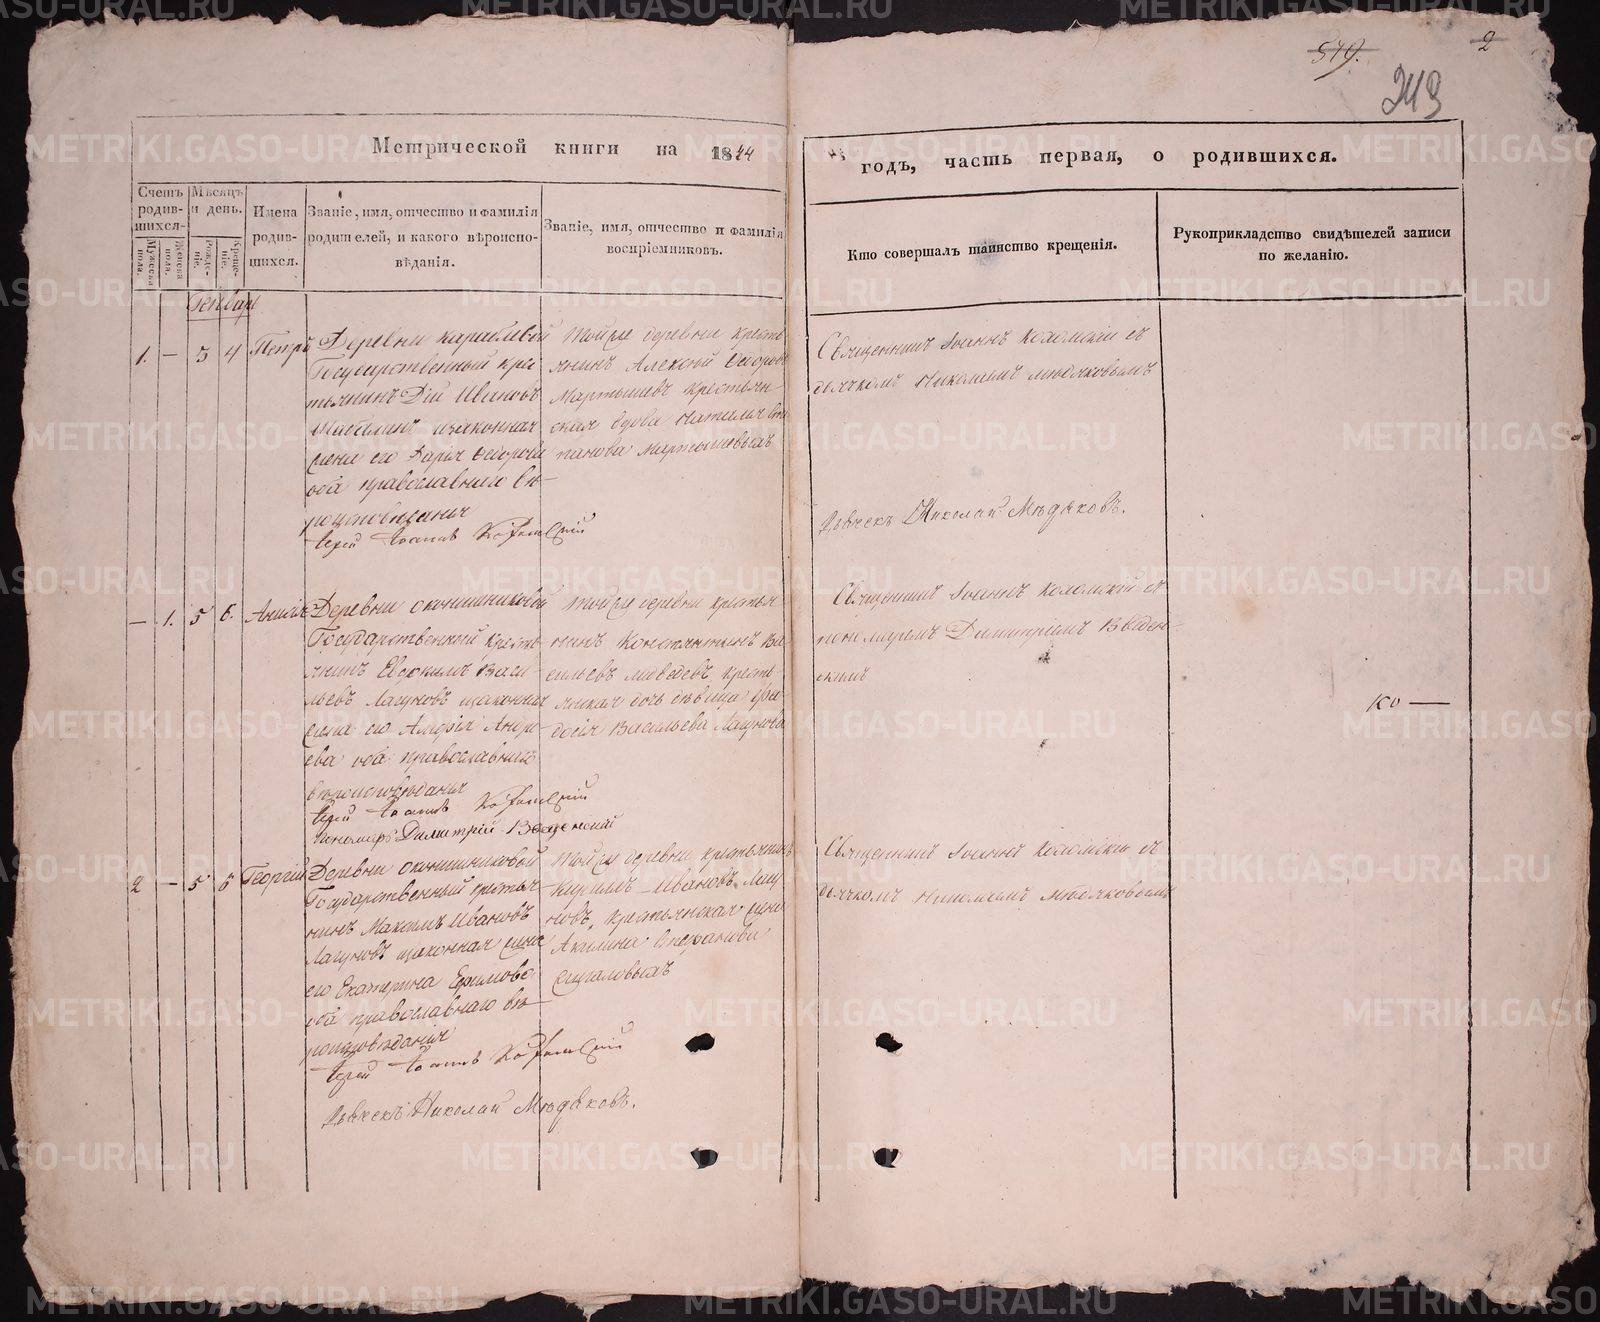 579. 2
243
Метрической книги на 1844 годъ, часть первая, о родившихся.
Счетъ родив-шихся.
Мужеска пола.
Женска пола.
Мѣсяцъ и день.
Рожде-нія.
Креще-нія.
Имена родив-шихся.
Званіе, имя, отчество и фамилія
родителей, и какого вѣроиспо-
вѣданія.
Званіе, имя, отчество и фамилія
воспріемниковъ.
Кто совершалъ таинство крещенія.
Рукоприкладство свидѣтелей записи
по желанію.
Генварь
1. — 3 4 Петръ
Деревни
Государственный крес
тьянинъ Дій Ивановъ
изаконная
жена его Дарія Ѳеодорова
оба православнаго вѣ-
роисповѣданія
Іерей Іоаннъ
Тойже деревни кресть
янинъ Алексѣй Ѳеодоровъ
Мартышевъ крестьян-
ская вдова Сте
панова Мартышевыхъ
Священникъ Іоаннъ съ
дьячкомъ Николаемъ Мѣдяковымъ
Дьячекъ Николай Мѣдяковъ.
— 1. 5 6.
Деревни
Государственный кресть
янинъ Евфимъ Васи-
льевъ Лагуновъ изаконная
жена его Андре
ева оба православнаго
вѣроисповѣданія
Іерей Іоаннъ
Пономарь Димитрій Введенскій
Тойже деревни крестья
нинъ Константинъ Ва
сильевъ Медведевъ кресть
янская дочь дѣвица
Васильева Лагунова
Священникъ Іоаннъ съ
пономаремъ Димитріемъ Введен-
скимъ
КО —
2 — 5 6 Георгій
Деревни
Государственный крестья
нинъ Максимъ Ивановъ
Лагуновъ изаконная жена
его Екатерина Ефимова
оба православнаго вѣ-
роисповѣданія
Іерей Іоаннъ
Дьячекъ Николай Мѣдяковъ.
Тойже деревни крестьянинъ
Кирилъ Ивановъ Лагу
новъ, крестьянская жена
Акилина Стефанова
Священникъ Іоаннъ съ
дьячкомъ Николаемъ Мѣдяковымъ
METRIKI.GASO-URAL.RU